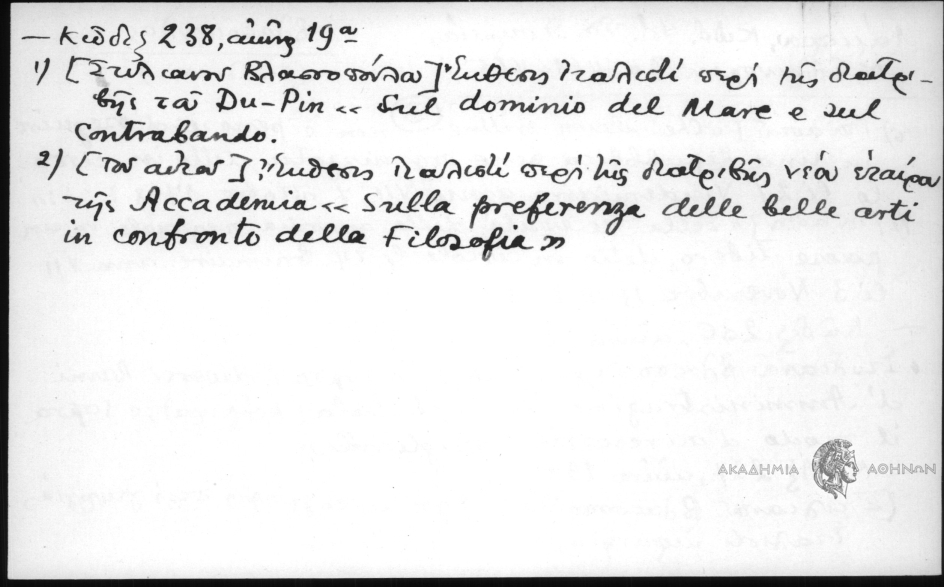 — Κῶδιξ 238, αἰών 19ος
1) [Στυλιανοῦ Βλασσοπούλου] Ἔκθεσις Ἰταλιστί περί τῆς διατρι-
βῆς τοῦ Du-Pin « Sul dominio del Mare e sul
contrabando.
2) [Τοῦ αὐτοῦ] Ἔκθεσις Ἰταλιστί περί τῆς διατριβῆς νέου ἑταίρου
τῆς Accademia « Sulla preferenza delle belle arti
in confronto della Filosofia »
ΑΚΑΔΗΜΙΑ ΑΘΗΝΩΝ